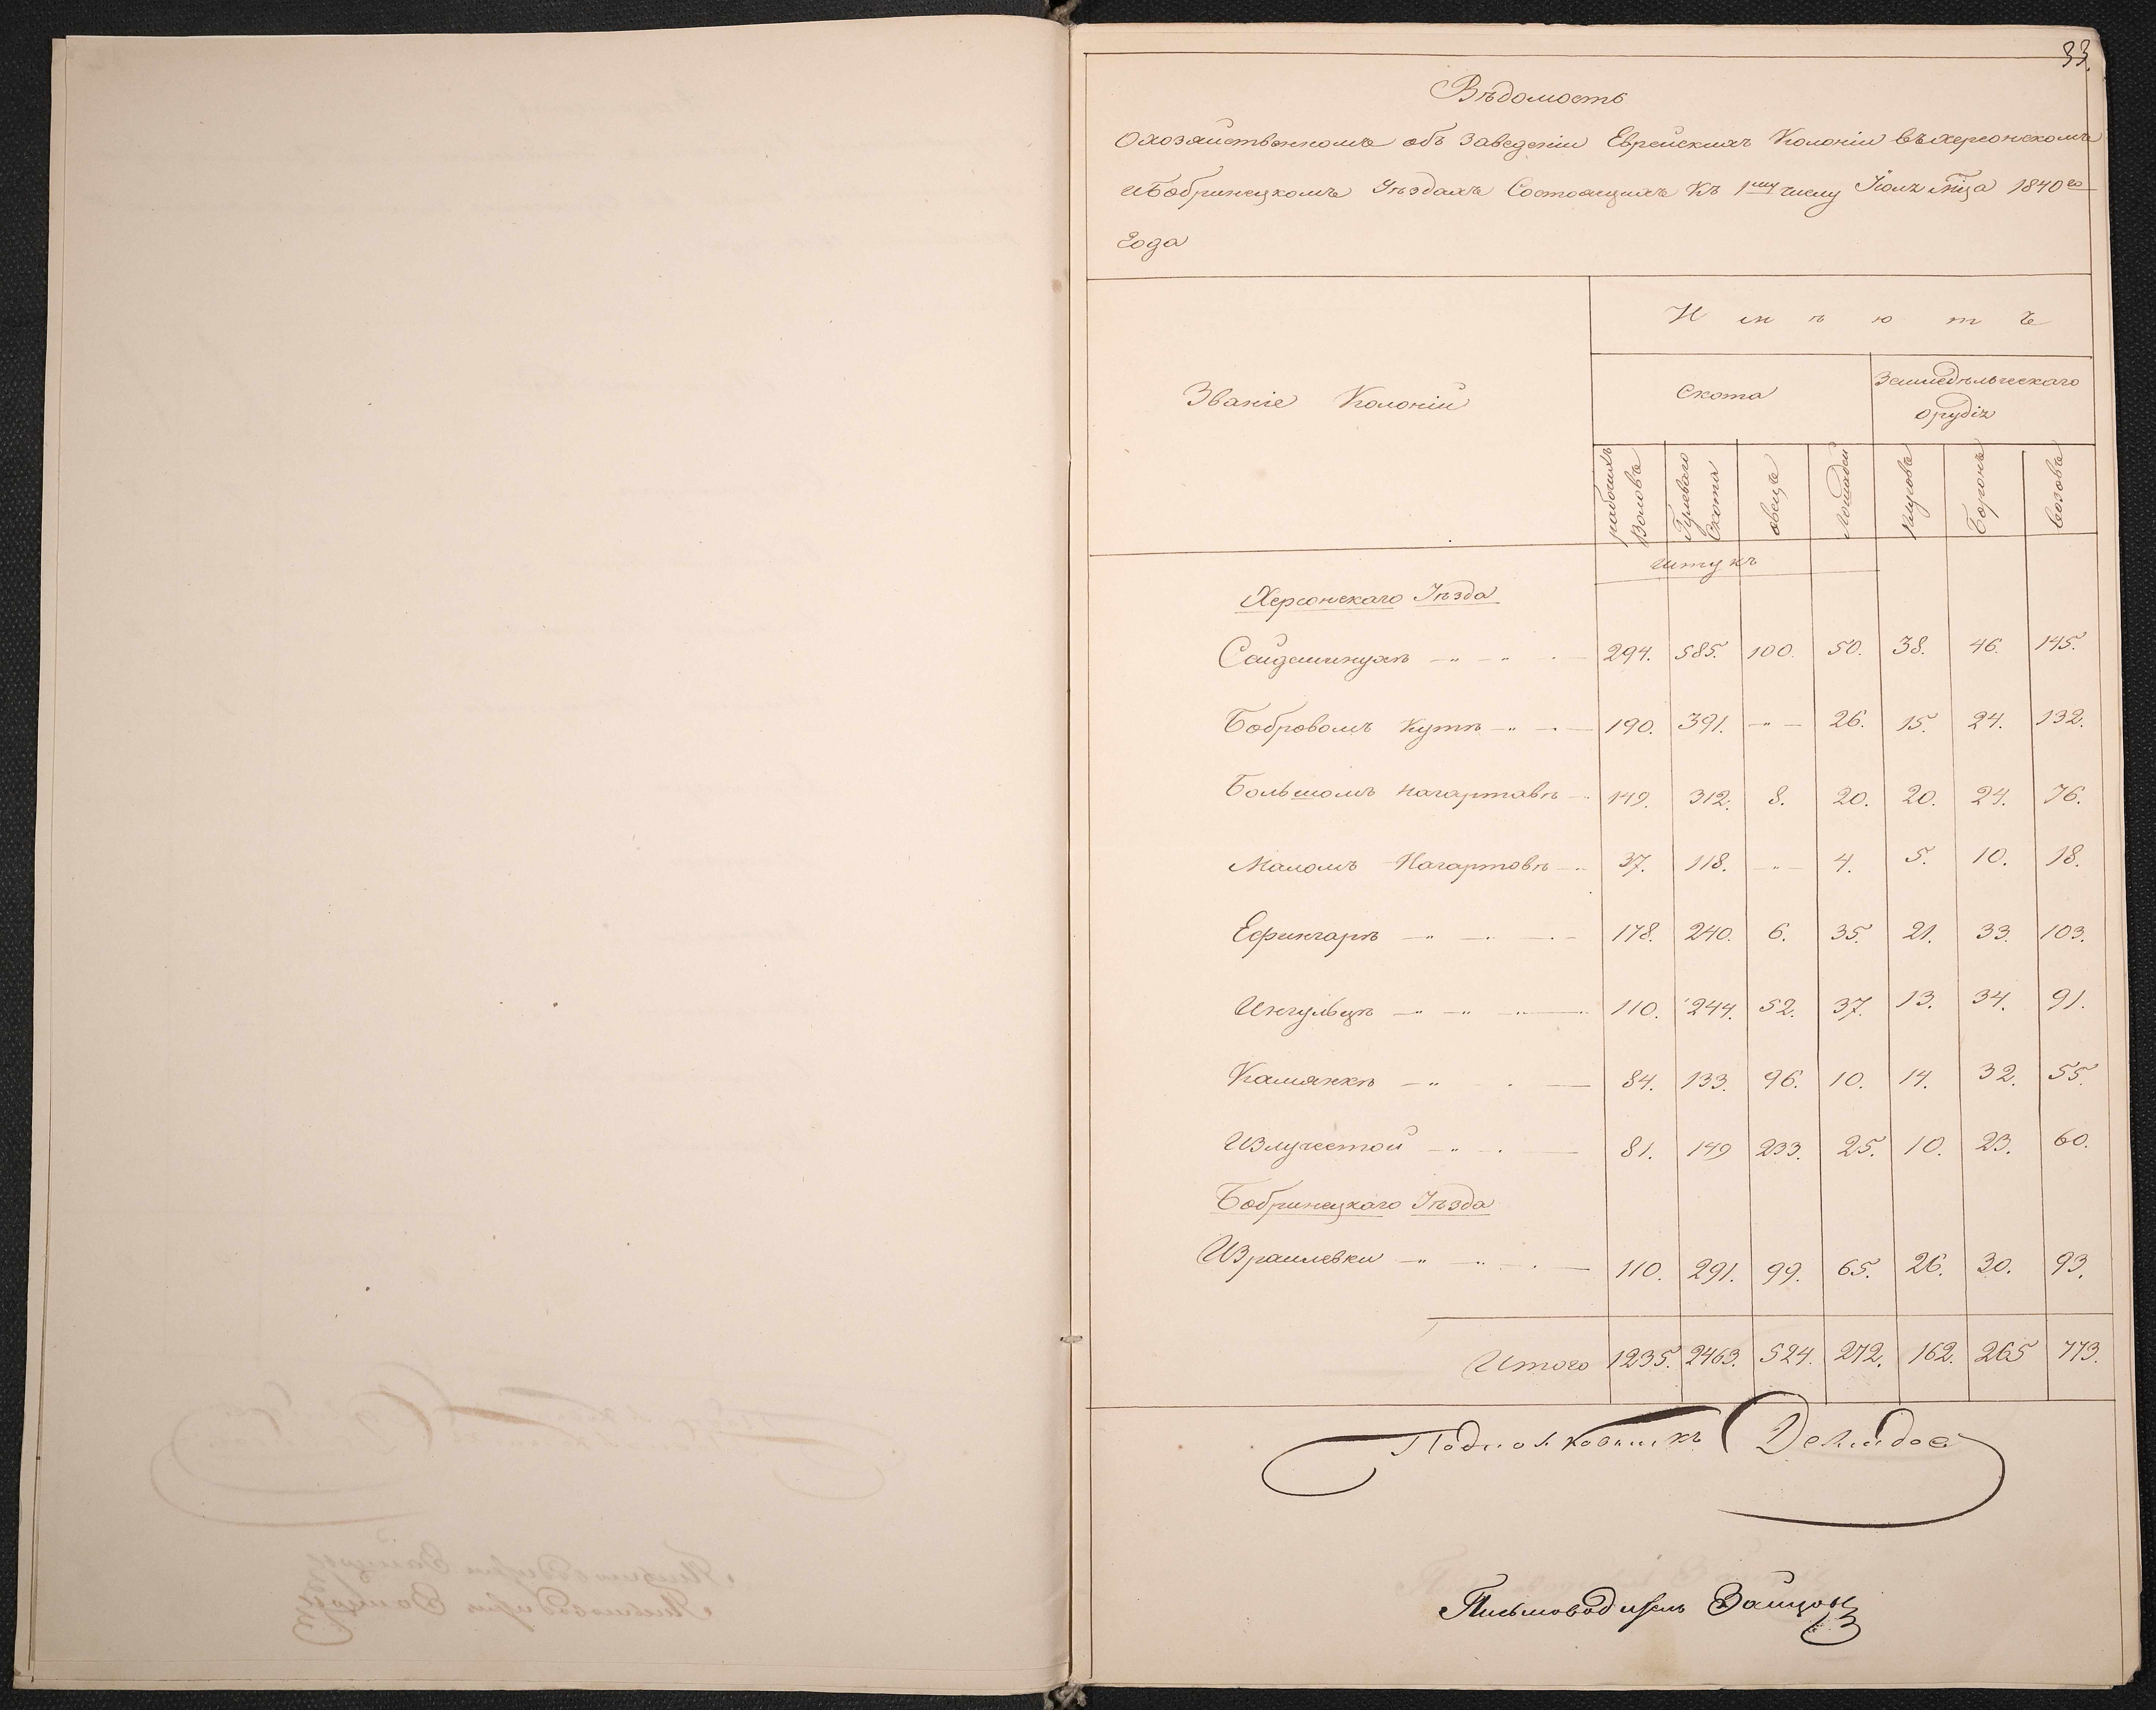 33.
Вѣдомость
О хозяйственномъ объ Заведеніи Еврейскихъ Колоніи въ херсонскомъ
и Бобринецкомъ Уѣздахъ Состоящихъ Къ 1му числу Іюля мца 1840го
Года
Званіе Колоніи
Имѣютъ
Скота
Земледѣльческаго орудія
рабочихъ Воловъ
Гулеваго Скота
овецъ
Лошадей
Плуговъ
Боронъ
Возовъ
штукъ
Херсонскаго Уѣзда
Сейдеминухѣ 294. 585. 100. 50. 38. 46. 145.
Бобровомъ Кутѣ 190. 391. - " - 26. 15. 24. 132.
Большомъ Нагартавѣ 149. 312. 8. 20. 20. 24. 76.
Маломъ Нагартовѣ 37. 118. - " - 4. 5. 10. 18.
Ефингарѣ 178. 240. 6. 35. 21. 33. 103.
Ингульцѣ 110. 244. 52. 37. 13. 34. 91.
Камянкѣ 84. 133. 96. 10. 14. 32. 55.
Излучестой 81. 149 233. 25. 10. 23. 60.
Бобринецкаго Уѣзда
Израилевки 110. 291. 99. 65. 26. 30. 93.
Итого 1235. 2463. 524. 272. 162. 265 773.
Подполковникъ Демидов
Письмоводитель Зайцовъ